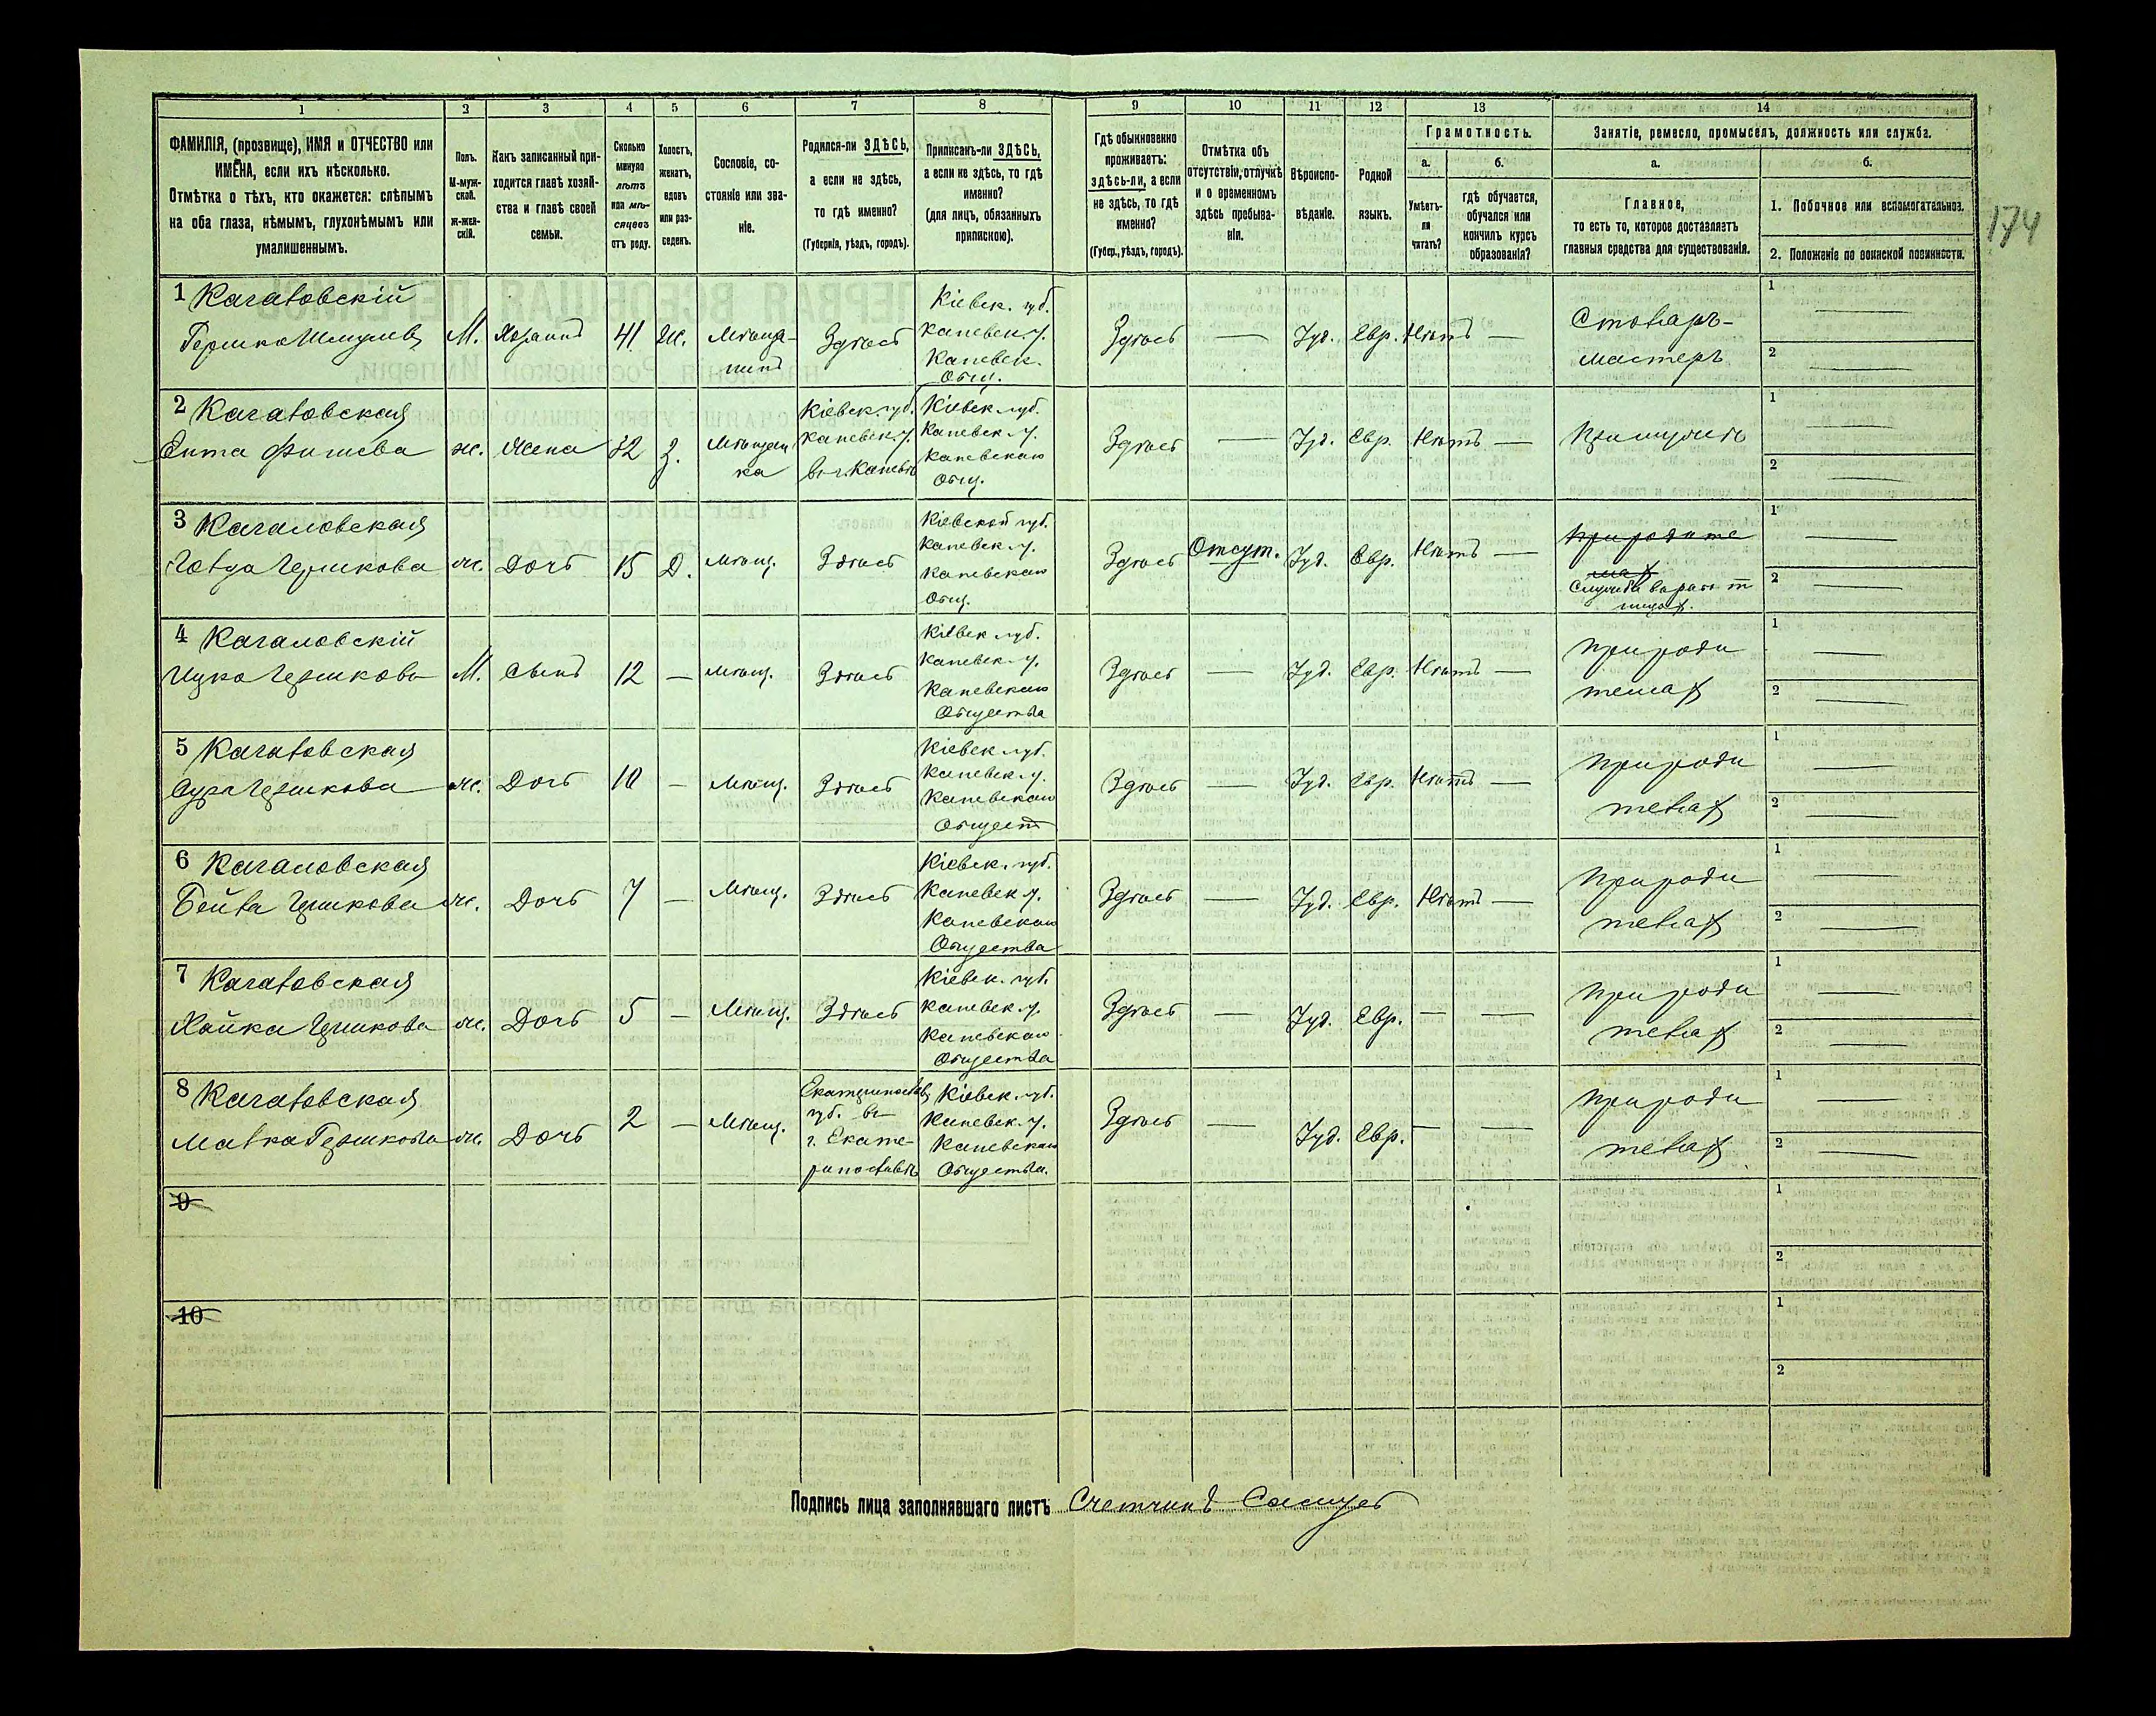 1 2 3 4 5 6 7 8 9 10 11 12 13 14
ФАМИЛІЯ, (прозвище), ИМЯ и ОТЧЕСТВО или
ИМЕНА, если ихъ нѣсколько.
Отмѣтка о тѣхъ, кто окажется: слѣпымъ
на оба глаза, нѣмымъ, глухонѣмымъ или
умалишеннымъ.
Полъ.
М-муж-
ской.
Ж-жен-
скій.
Какъ записанный при-
ходится главѣ хозяй-
ства и главѣ своей
семьи.
Сколько
минуло
лѣтъ
или мѣ-
сяцевъ
отъ роду.
Холостъ,
женатъ,
вдовъ
или раз-
веденъ.
Сословіе, со-
стояніе или зва-
ніе.
Родился-ли ЗДѢСЬ,
а если не здѣсь,
то гдѣ именно?
(Губернія, уѣздъ, городъ).
Приписанъ-ли ЗДѢСЬ,
а если не здѣсь, то гдѣ
именно?
(для лицъ, обязанныхъ
припискою).
Гдѣ обыкновенно
проживаетъ:
здѣсь-ли, а если
не здѣсь, то гдѣ
именно?
(Губер., уѣздъ, городъ).
Отмѣтка объ
отсутствіи, отлучкѣ
и о временномъ
здѣсь пребыва-
ніи.
Вѣроиспо-
вѣданіе.
Родной
языкъ.
Грамотность.
а. б.
Умѣетъ-
ли
читать?
гдѣ обучается,
обучался или
кончилъ курсъ
образованія?
Занятіе, ремесло, промыселъ, должность или служба.
а. б.
Главное,
то есть то, которое доставляетъ
главныя средства для существованія.
1. Побочное или вспомогательное.
2. Положеніе по воинской повинности.
174
1 Кагаловскій
Гершко Шмулев
М. Хозяинъ 41 Ж. Мѣща-
нинъ
Здѣсь
Кіевск. губ.
Каневск. у.
Каневск.
Общ.
Здѣсь — Іуд. Евр. Нѣтъ —
Столяръ-
мастеръ
1
2
2 Кагаловская
Ента
ж. Жена 32 З. Мѣщан
ка
Кіевск. губ.
Каневск. у.
въ г. Каневѣ
Кіевск. губ.
Каневск. у.
Каневскаго
Общ.
Здѣсь — Іуд. Евр. Нѣтъ —
При мужѣ
1
2
3 Кагаловская
Гершкова
ж. Дочь 15 Д. Мѣщ. Здѣсь
Кіевской губ.
Каневск. у.
Каневскаго
Общ.
Здѣсь Отсут. Іуд. Евр. Нѣтъ —
При родите
лях
1
2
4 Кагаловскій
Ицко Гершковъ
М. Сынъ 12 — Мѣщ. Здѣсь
Кіевск. губ.
Каневск. у.
Каневскаго
Общества
Здѣсь — Іуд. Евр. Нѣтъ —
При роди
телях
1
2
5 Кагаловская
Сура Гершкова
ж. Дочь 10 — Мѣщ. Здѣсь
Кіевск. губ.
Каневск. у.
Каневскаго
Общест
Здѣсь — Іуд. Евр. Нѣтъ —
При роди
телях
1
2
6 Кагаловская
Бейла Гершкова
ж. Дочь 7 — Мѣщ. Здѣсь
Кіевск. губ.
Каневск. у.
Каневскаго
Общества
Здѣсь — Іуд. Евр. Нѣтъ —
При роди
телях
1
2
7 Кагаловская
Хайка Гершкова
ж. Дочь 5 — Мѣщ. Здѣсь
Кіевск. губ.
Каневск. у.
Каневскаго
Общества
Здѣсь — Іуд. Евр. — —
При роди
телях
1
2
8 Кагаловская
Малка Гершкова
ж. Дочь 2 — Мѣщ.
Екатеринослав.
губ. въ
г. Екате-
ринославѣ
Кіевск. губ.
Каневск. у.
Каневскаго
Общества.
Здѣсь — Іуд. Евр. — —
При роди
телях
1
2
9
1
2
10
1
2
Подпись лица заполнявшаго листъ Счетчикъ